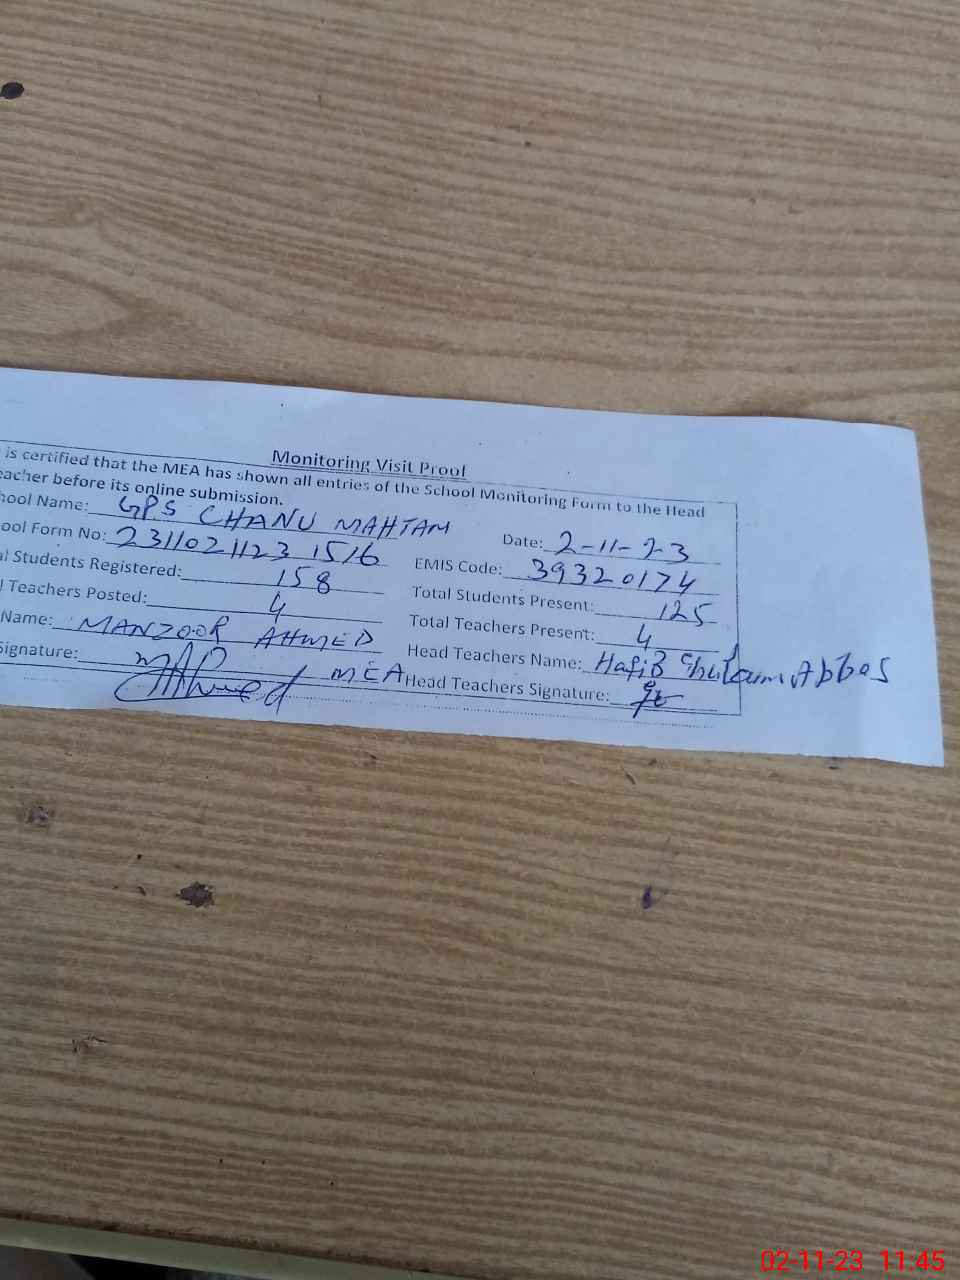 Monitoring Visit Proof
is certified that the MEA has shown all entries of the School Monitoring Form to the Head
eacher before its online submission.
hool Name: GPS CHANU MAHTAM
Date: 2-11-23
ool Form No: 2311021123 1516
EMIS Code: 39320174
al Students Registered: 158
Total Students Present: 125
l Teachers Posted: 4
Total Teachers Present: 4
Name: MANZOOR AHMED
Head Teachers Name: Hafiz Ghulam Abbas
Signature: MEA
Head Teachers Signature:
02-11-23 11:45